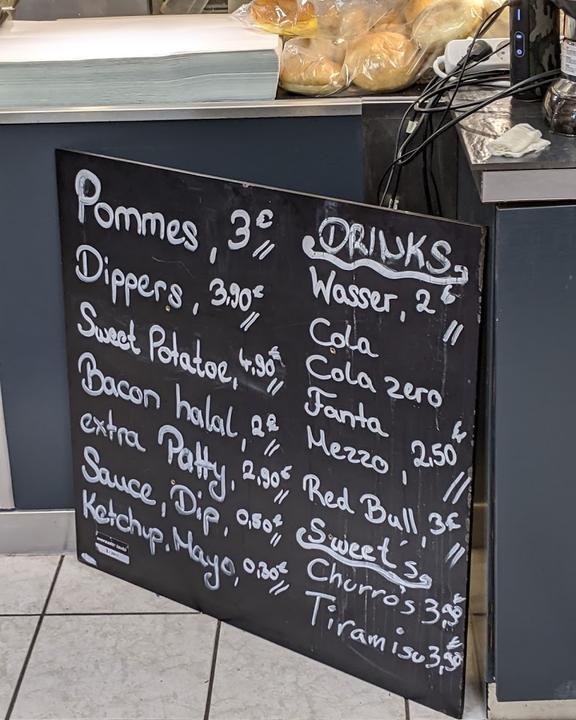 Pommes, 3€
Dippers, 3,90€
Sweet Potatoe, 4,90€
Bacon halal, 2€
extra Patty, 2,90€
Sauce, Dip, 0,50€
Ketchup, Mayo, 0,30€
DRINKS
Wasser, 2€
Cola
Cola zero
Fanta
Mezzo, 2,50€
Red Bull, 3€
Sweet's
Churro's 3,90€
Tiramisu 3,50€